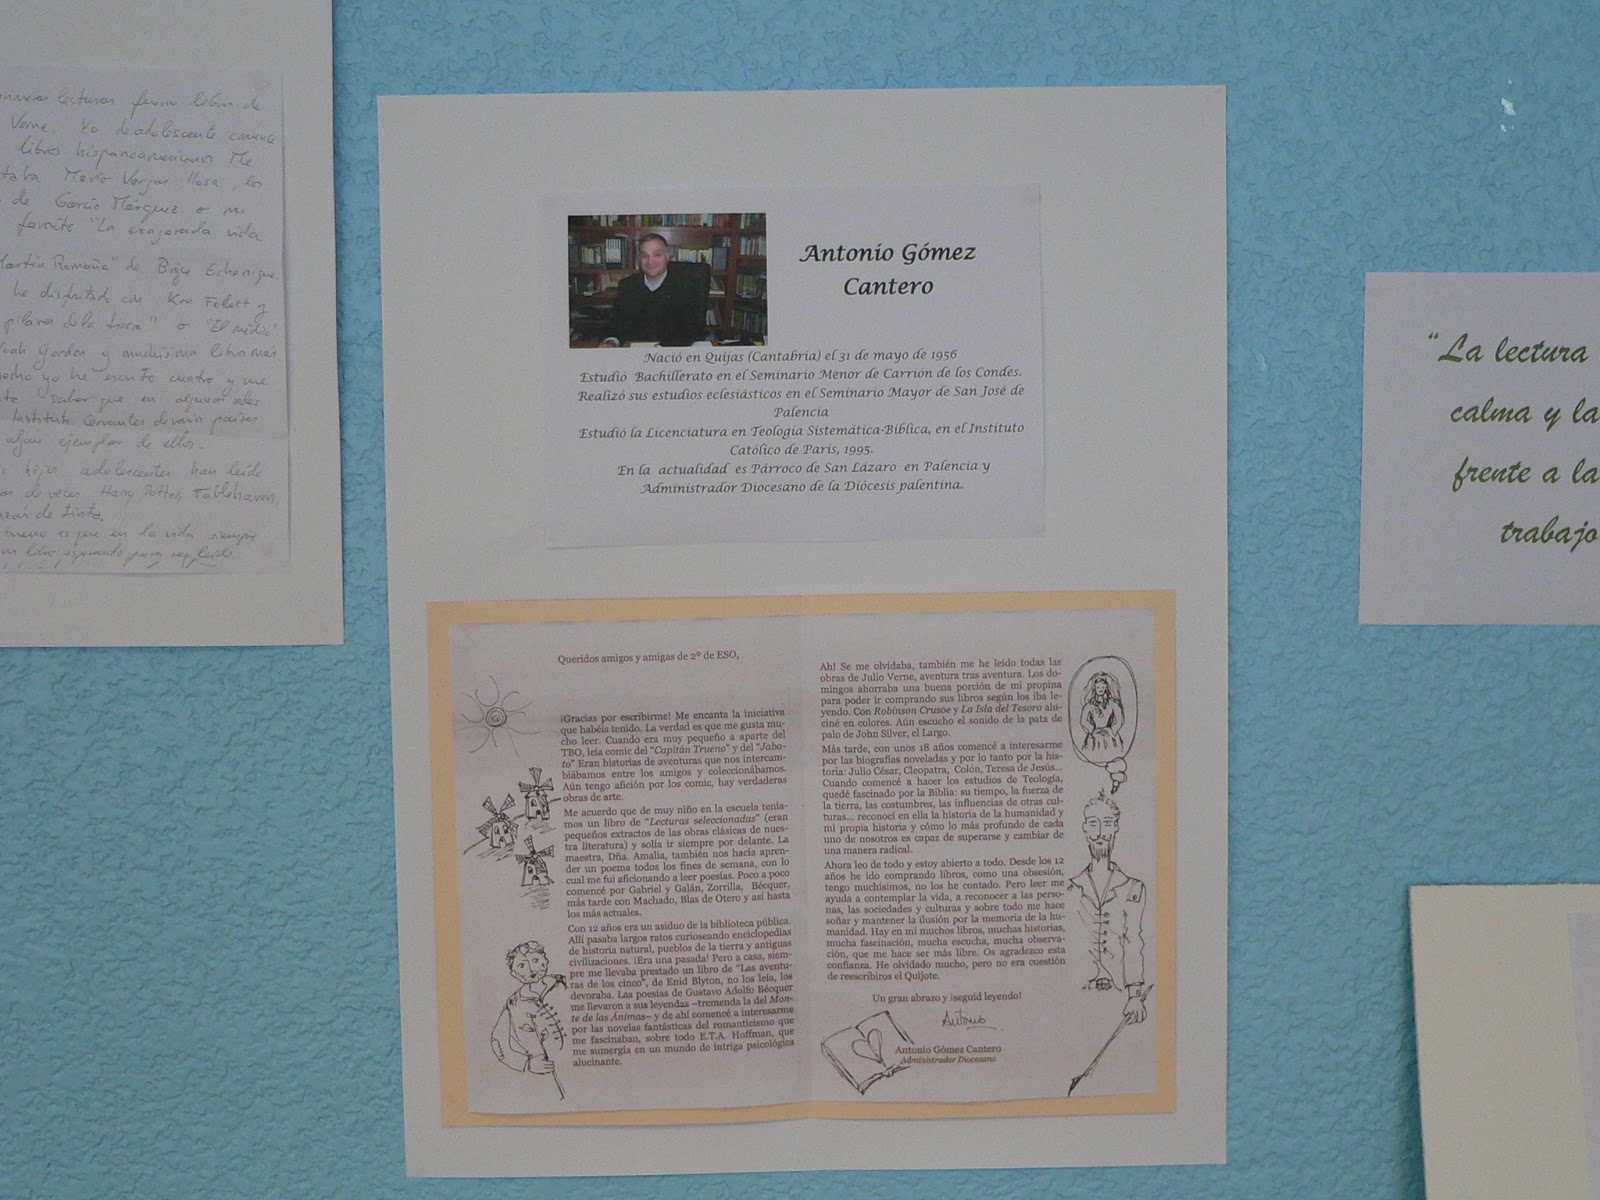 primeras lecturas fueron libros de
Verne. Yo de adolescente comencé
libros hispanoamericanos Me
Mario Vargas Llosa, los
de García Márquez o mi
favorito "La exagerada vida
Martín Romaña" de Bryce Echenique.
he disfrutado con Ken Follett y
pilares de la tierra" o "El médico"
Noah Gordon y muchísimos libros más
yo he escrito cuatro y me
saber que en algunas sedes
Instituto Cervantes de varios países
algún ejemplar de ellos.
hijos adolescentes han leído
de veces Harry Potter, Fablehaven,
de tinta.
bueno es que en la vida siempre
un libro esperando para ser leído.
Antonio Gómez
Cantero
Nació en Quijas (Cantabria) el 31 de mayo de 1956
Estudió Bachillerato en el Seminario Menor de Carrión de los Condes.
Realizó sus estudios eclesiásticos en el Seminario Mayor de San José de
Palencia
Estudió la Licenciatura en Teología Sistemática-Bíblica, en el Instituto
Católico de París, 1995.
En la actualidad es Párroco de San Lázaro en Palencia y
Administrador Diocesano de la Diócesis palentina.
Queridos amigos y amigas de 2º de ESO,
¡Gracias por escribirme! Me encanta la iniciativa
que habéis tenido. La verdad es que me gusta mu-
cho leer. Cuando era muy pequeño a aparte del
TBO, leía comic del "Capitán Trueno" y del "Jaba-
to" Eran historias de aventuras que nos intercam-
biábamos entre los amigos y coleccionábamos.
Aún tengo afición por los comic, hay verdaderas
obras de arte.
Me acuerdo que de muy niño en la escuela tenía-
mos un libro de "Lecturas seleccionadas" (eran
pequeños extractos de las obras clásicas de nues-
tra literatura) y solía ir siempre por delante. La
maestra, Dña. Amalia, también nos hacía apren-
der un poema todos los fines de semana, con lo
cual me fui aficionando a leer poesías. Poco a poco
comencé por Gabriel y Galán, Zorrilla, Bécquer,
más tarde con Machado, Blas de Otero y así hasta
los más actuales.
Con 12 años era un asiduo de la biblioteca pública.
Allí pasaba largos ratos curioseando enciclopedias
de historia natural, pueblos de la tierra y antiguas
civilizaciones. ¡Era una pasada! Pero a casa, siem-
pre me llevaba prestado un libro de "Las aventu-
ras de los cinco", de Enid Blyton, no los leía, los
devoraba. Las poesías de Gustavo Adolfo Bécquer
me llevaron a sus leyendas –tremenda la del Mon-
te de las Ánimas– y de ahí comencé a interesarme
por las novelas fantásticas del romanticismo que
me fascinaban, sobre todo E.T.A. Hoffman, que
me sumergía en un mundo de intriga psicológica
alucinante.
Ah! Se me olvidaba, también me he leído todas las
obras de Julio Verne, aventura tras aventura. Los do-
mingos ahorraba una buena porción de mi propina
para poder ir comprando sus libros según los iba le-
yendo. Con Robinson Crusoe y La Isla del Tesoro alu-
ciné en colores. Aún escucho el sonido de la pata de
palo de John Silver, el Largo.
Más tarde, con unos 18 años comencé a interesarme
por las biografías noveladas y por lo tanto por la his-
toria: Julio César, Cleopatra, Colón, Teresa de Jesús...
Cuando comencé a hacer los estudios de Teología,
quedé fascinado por la Biblia: su tiempo, la fuerza de
la tierra, las costumbres, las influencias de otras cul-
turas... reconocí en ella la historia de la humanidad y
mi propia historia y cómo lo más profundo de cada
uno de nosotros es capaz de superarse y cambiar de
una manera radical.
Ahora leo de todo y estoy abierto a todo. Desde los 12
años he ido comprando libros, como una obsesión,
tengo muchísimos, no los he contado. Pero leer me
ayuda a contemplar la vida, a reconocer a las perso-
nas, las sociedades y culturas y sobre todo me hace
soñar y mantener la ilusión por la memoria de la hu-
manidad. Hay en mi muchos libros, muchas historias,
mucha fascinación, mucha escucha, mucha observa-
ción, que me hace ser más libre. Os agradezco esta
confianza. He olvidado mucho, pero no era cuestión
de reescribiros el Quijote.
Un gran abrazo y ¡seguid leyendo!
Antonio
Antonio Gómez Cantero
Administrador Diocesano
"La lectura
calma y la
frente a la
trabajo